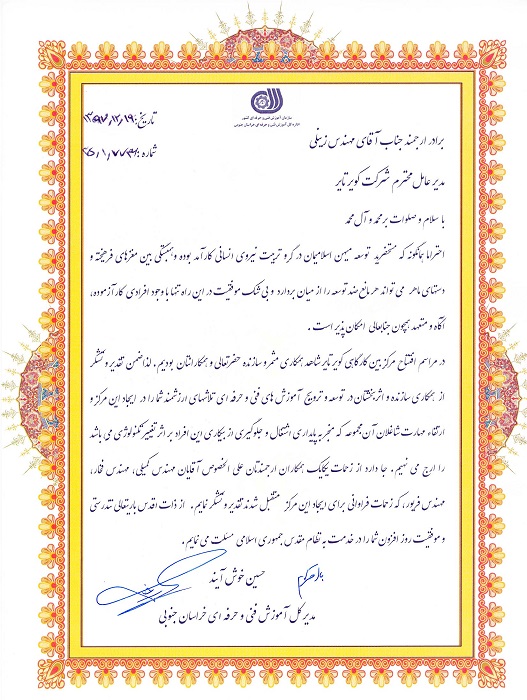 سازمان آموزش فنی و حرفه ای کشور
اداره کل آموزش فنی و حرفه ای خراسان جنوبی
تاریخ: ۱۳۹۲/۱۲/۱۹
شماره:
برادر ارجمند جناب آقای مهندس زینلی
مدیر عامل محترم شرکت کویر تایر
با سلام و صلوات بر محمد و آل محمد
احتراما همانگونه که مستحضرید توسعه میهن اسلامیمان در گرو تربیت نیروی انسانی کارآمد بوده و همبستگی بین مغزهای فرهیخته و
دستهای ماهر می تواند هر مانع ضد توسعه را از میان بردارد و بی شک موفقیت در این راه تنها با وجود افرادی کار آزموده،
آگاه و متعهد همچون جنابعالی امکان پذیر است.
در مراسم افتتاح مرکز بین کارگاهی کویر تایر شاهد همکاری مثمر و سازنده حضرتعالی و همکارانتان بودیم. لذا ضمن تقدیر و تشکر
از همکاری سازنده و اثربخشتان در توسعه و ترویج آموزش های فنی و حرفه ای تلاشهای ارزشمند شما را در ایجاد این مرکز و
ارتقاء مهارت شاغلان آن مجموعه که منجر به پایداری اشتغال و جلوگیری از بیکاری این افراد بر اثر تغییر تکنولوژی می باشد
را ارج می نهیم. جا دارد از زحمات یکایک همکاران ارجمندتان علی الخصوص آقایان مهندس کمیلی، مهندس فخار،
مهندس فرپور، که زحمات فراوانی برای ایجاد این مرکز متقبل شدند تقدیر و تشکر نمایم. از ذات اقدس باریتعالی تندرستی
و موفقیت روز افزون شما را در خدمت به نظام مقدس جمهوری اسلامی مسئلت می نمایم.
حسین خوش آیند
مدیر کل آموزش فنی و حرفه ای خراسان جنوبی